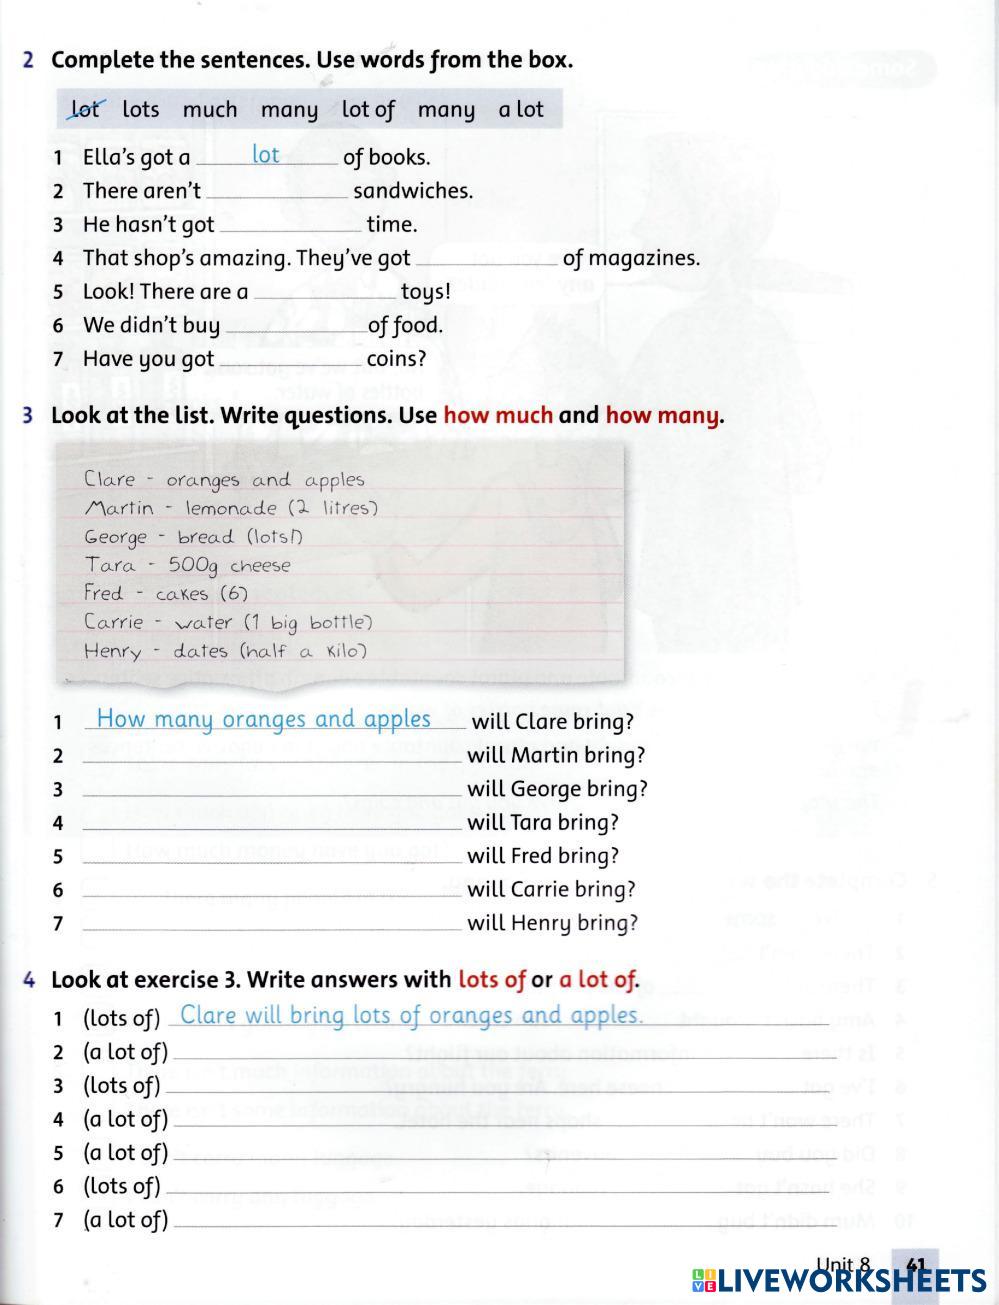 2 Complete the sentences. Use words from the box.
lot lots much many lot of many a lot
1 Ella's got a lot of books.
2 There aren't ____ sandwiches.
3 He hasn't got ____ time.
4 That shop's amazing. They've got ____ of magazines.
5 Look! There are a ____ toys!
6 We didn't buy ____ of food.
7 Have you got ____ coins?
3 Look at the list. Write questions. Use how much and how many.
Clare - oranges and apples
Martin - lemonade (2 litres)
George - bread (lots!)
Tara - 500g cheese
Fred - cakes (6)
Carrie - water (1 big bottle)
Henry - dates (half a kilo)
1 How many oranges and apples will Clare bring?
2 ____ will Martin bring?
3 ____ will George bring?
4 ____ will Tara bring?
5 ____ will Fred bring?
6 ____ will Carrie bring?
7 ____ will Henry bring?
4 Look at exercise 3. Write answers with lots of or a lot of.
1 (lots of) Clare will bring lots of oranges and apples.
2 (a lot of) ____
3 (lots of) ____
4 (a lot of) ____
5 (a lot of) ____
6 (lots of) ____
7 (a lot of) ____
Unit 8 41
LIVE LIVEWORKSHEETS